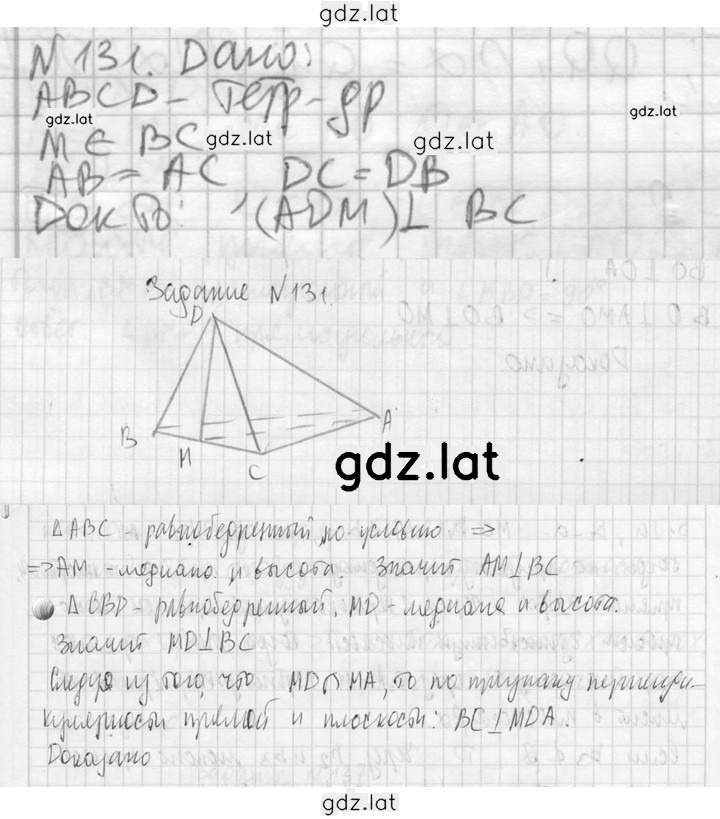 gdz.lat
N 131. Дано:
ABCD - тетр-др
gdz.lat
gdz.lat
M ∈ BC
gdz.lat
gdz.lat
AB = AC DC = DB
Док-ть: (ADM) ⊥ BC
Задание N 131.
D
B
M
C
A
gdz.lat
Δ ABC - равнобедренный по условию =>
=> AM - медиана и высота. Значит AM ⊥ BC
Δ CBD - равнобедренный, MD - медиана и высота.
Значит MD ⊥ BC
Следуя из того, что MD ∩ MA, то по признаку перпенди-
кулярности прямой и плоскости: BC ⊥ MDA
Доказано
gdz.lat